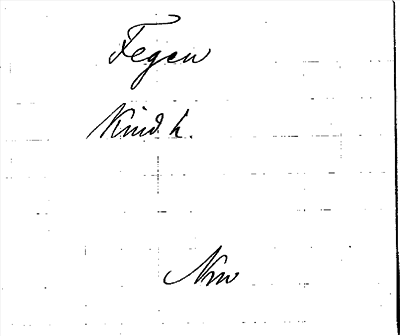 Fegen
Kind. h.
Nm